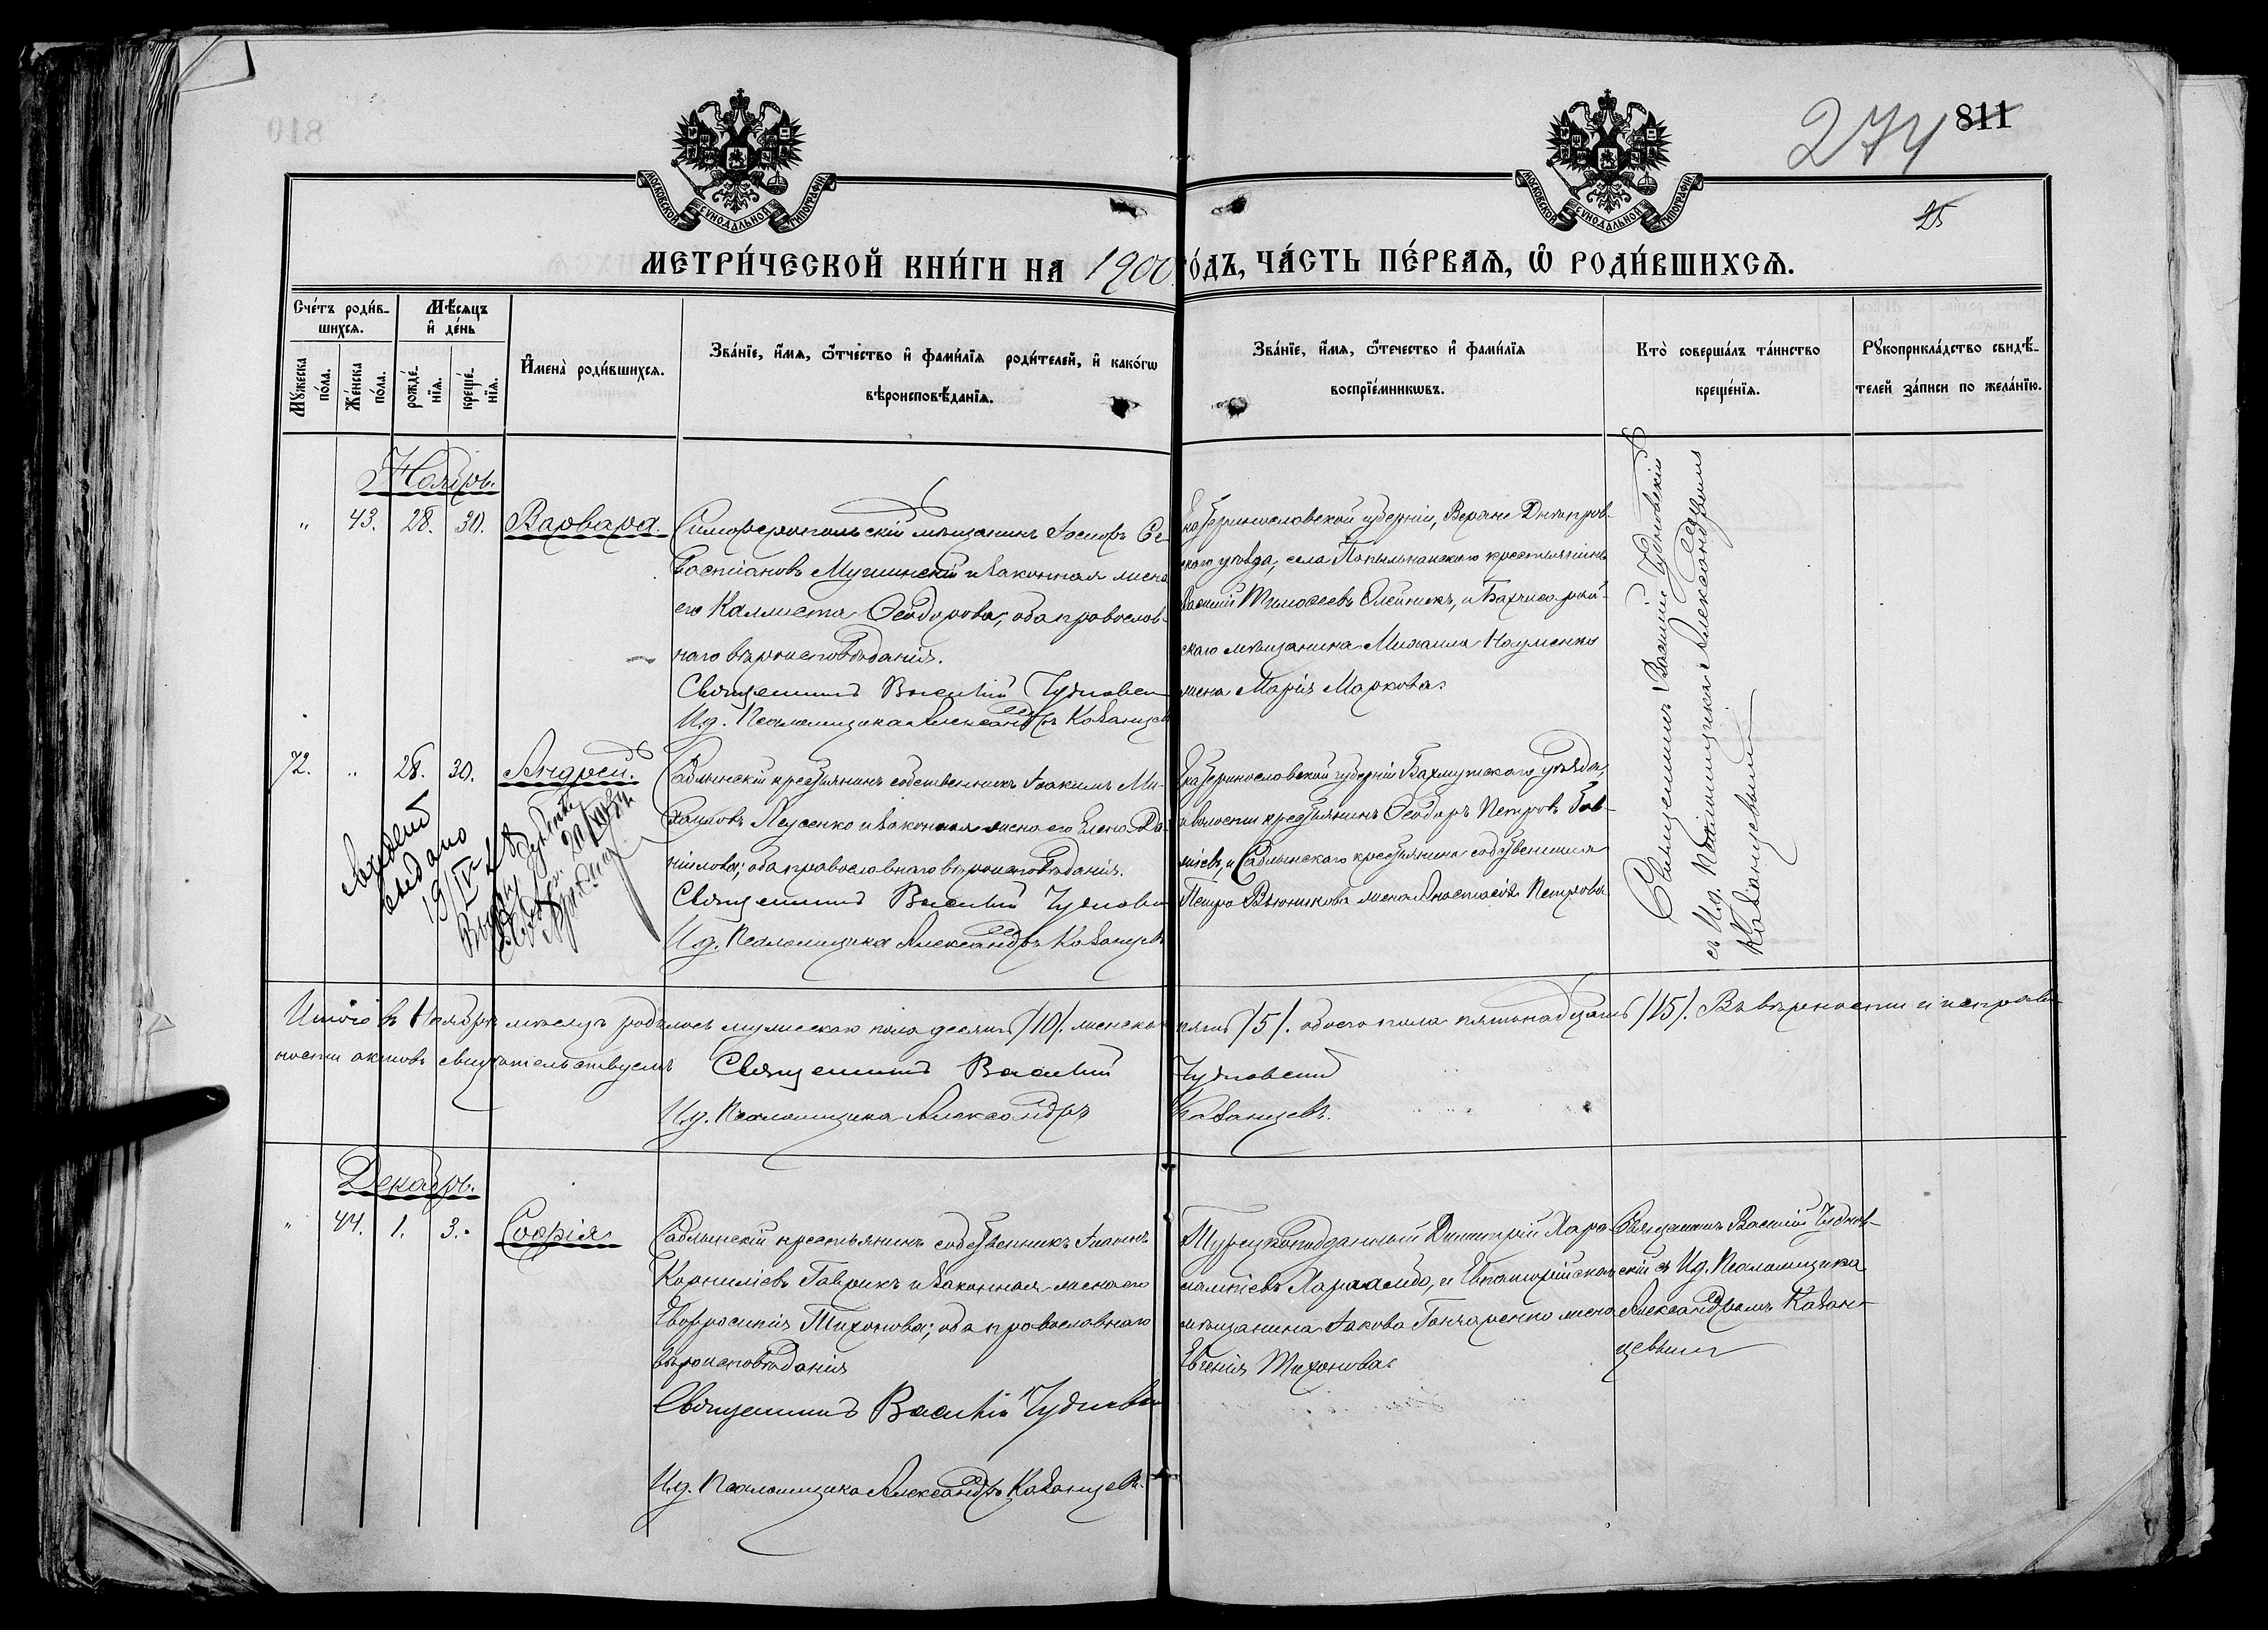 274 811
25
МОСКОВСКОЙ СУНОДАЛЬНОЙ ТИПОГРАФІИ
МОСКОВСКОЙ СУНОДАЛЬНОЙ ТИПОГРАФІИ
МЕТРИ́ЧЕСКОЙ КНИ́ГИ НА 1900 го́дъ, ЧА́СТЬ ПЕ́РВАѦ, Ѽ РОДИ́ВШИХСѦ.
Сче́тъ роди́в-
шихсѧ.
Мѣ́сѧцъ
и҆ де́нь
Мꙋжеска
по́ла.
Же́нска
по́ла.
рожде́-
нїѧ.
креще́-
нїѧ.
И҆мена̀ роди́вшихсѧ.
Зва́нїе, и҆́мѧ, ѻ҆́тчество и҆ фами́лїѧ роди́телей, и҆ како́гѡ
вѣроисповѣ́данїѧ.
Зва́нїе, и҆́мѧ, ѻ҆́течество и҆ фами́лїѧ
воспрїе́мникѡвъ.
Кто̀ соверша́лъ та́инство
креще́нїѧ.
Рꙋкоприкла́дство свидѣ́-
телей за́писи по жела́нїю.
Ноябрь.
" 43. 28. 30. Варвара.
Симферопольскій мѣщанинъ Іосифъ Се-
вастіановъ Мушинскій и законная жена
его Каллиста Ѳеодорова; оба православ-
наго вѣроисповѣданія.
Священникъ Василій Чудновскій
И.д. Псаломщика Александръ Казанцевъ
Екатеринославской губерніи, Верхне Днѣпров-
скаго уѣзда, села крестьянинъ
Василій Тимоѳеевъ Олейникъ, и Бахчисарай-
скаго мѣщанина Михаила Науменко
жена Марія Маркова.
Священникъ Василій Чудновскій
съ И.д. Псаломщика Александромъ
Казанцевымъ
72. " 28. 30. Андрей.
Саблынскій крестьянинъ собственникъ Іоакимъ Ми-
хаиловъ Леусенко и законная жена его Елена Да-
ніилова; оба православнаго вѣроисповѣданія.
Священникъ Василій Чудновскій
И.д. Псаломщика Александръ Казанцевъ
Екатеринославской губерніи Бахмутскаго уѣзда,
волости крестьянинъ Ѳеодоръ Петровъ
и Саблынскаго крестьянина собственника
Петра Вьюникова жена Анастасія Петрова
выдано
19/IV
Итого въ Ноябрѣ мѣсяцѣ родилось мужескаго пола десять /10/. женскаго пять /5/. обоего пола пятнадцать /15/. Въ вѣрности и исправ-
ности актовъ свидѣтельствуемъ Священникъ Василій Чудновскій
И.д. Псаломщика Александръ Казанцевъ.
Декабрь.
" 44. 1. 3. Софія
Саблынскій крестьянинъ собственникъ Іоаннъ
Корниліевъ Гаврикъ и законная жена его
Евфросинія Тихонова; оба православнаго
вѣроисповѣданія
Священникъ Василій Чудновскій
И.д. Псаломщика Александръ Казанцевъ.
Турецкоподданный Димитрій Хара-
лампіевъ и Евпаторійскаго
мѣщанина Іакова Гончаренко жена
Евгенія Тихонова.
Священникъ Василій Чуднов-
скій съ И.д. Псаломщика
Александромъ Казан-
цевымъ